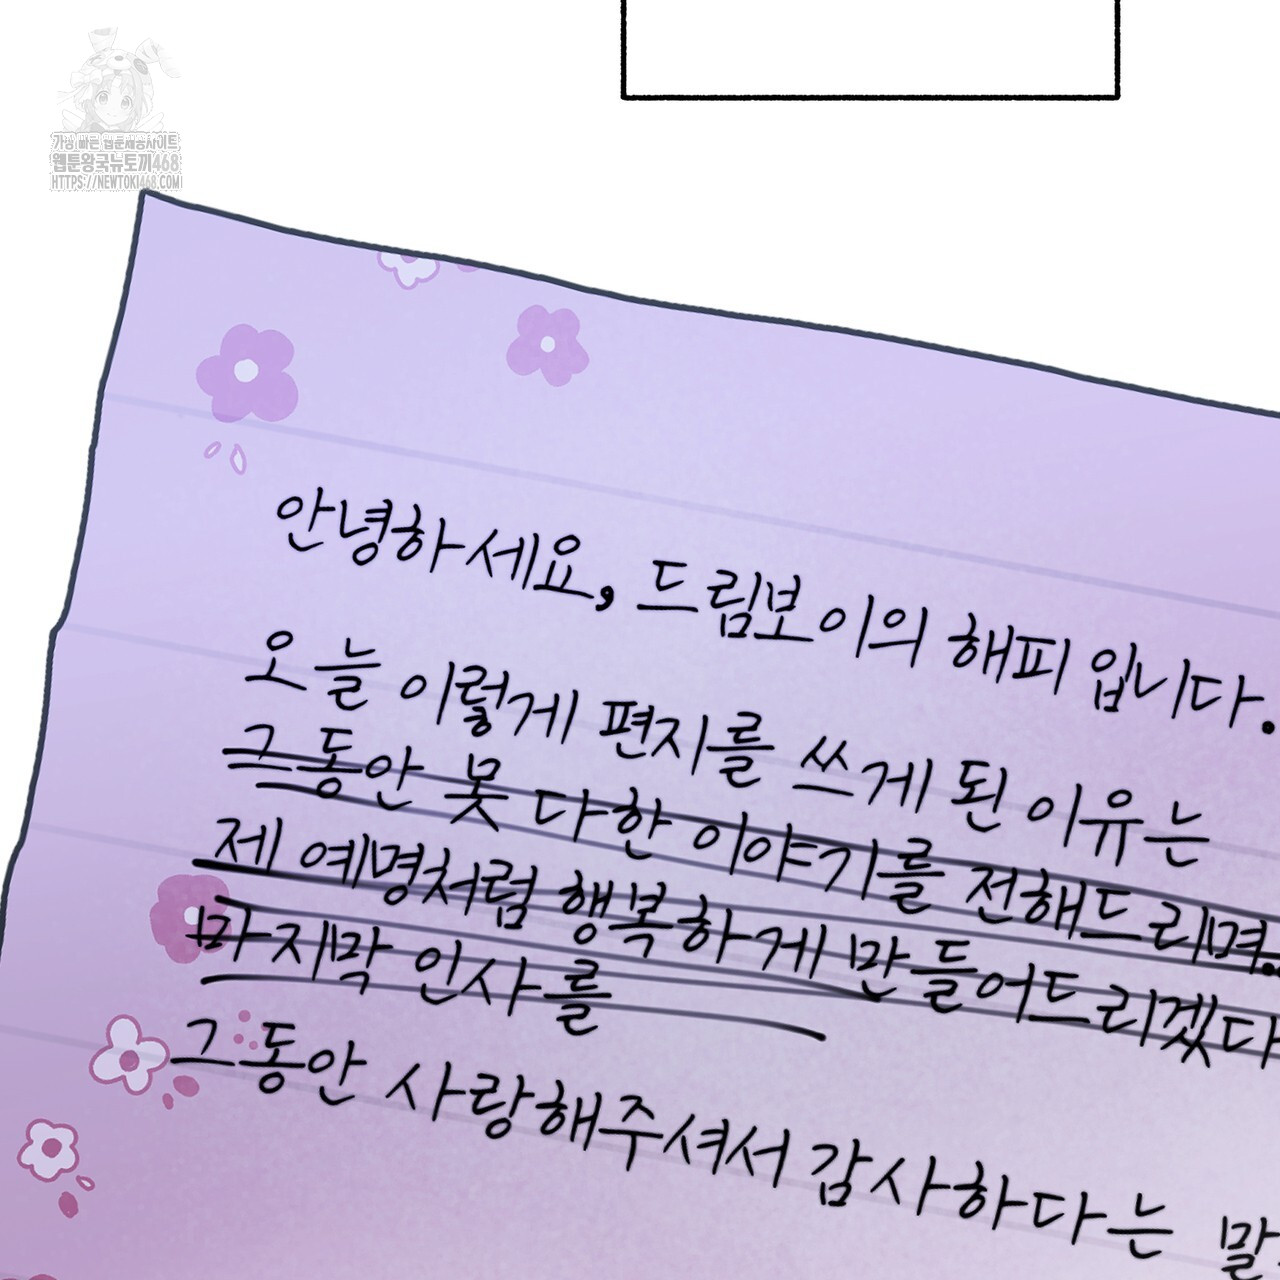 가장 빠른 웹툰제공사이트
웹툰왕국뉴토끼468
HTTPS://NEWTOKI468.COM
안녕하세요, 드림보이의 해피입니다.
오늘 이렇게 편지를 쓰게 된 이유는
그동안 못 다한 이야기를 전해드리며.
제 예명처럼 행복하게 만들어드리겠다
마지막 인사를
그동안 사랑해주셔서 감사하다는 말